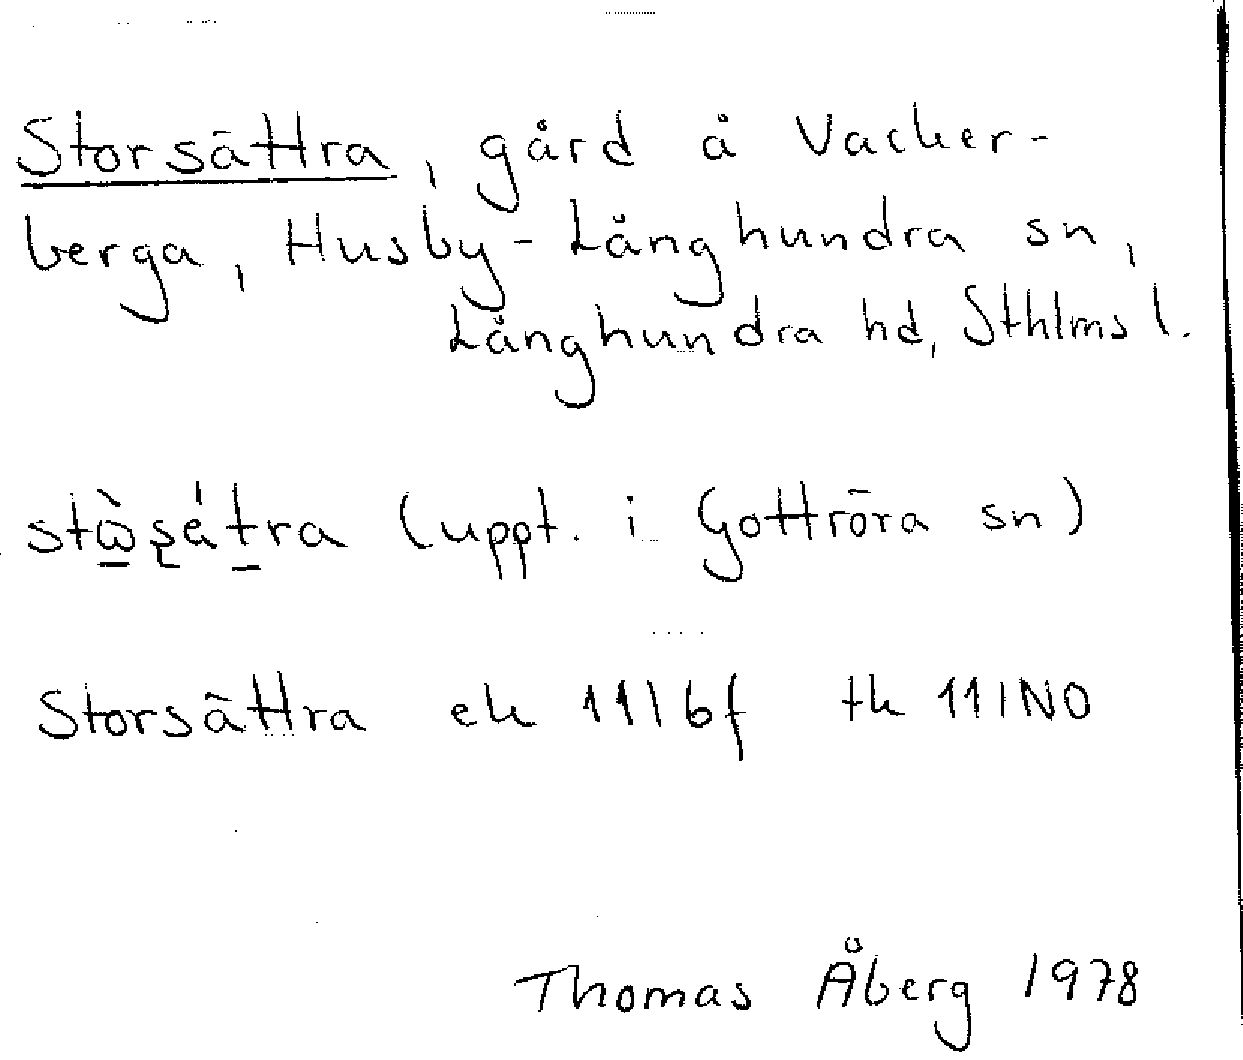 Storsättra, gård å Vacker-
berga, Husby-Långhundra sn,
Långhundra hd, Sthlms l.
stὼ̱ʂétra (uppt. i Gottröra sn)
Storsättra ek 11I6f tk 11INO
Thomas Åberg 1978